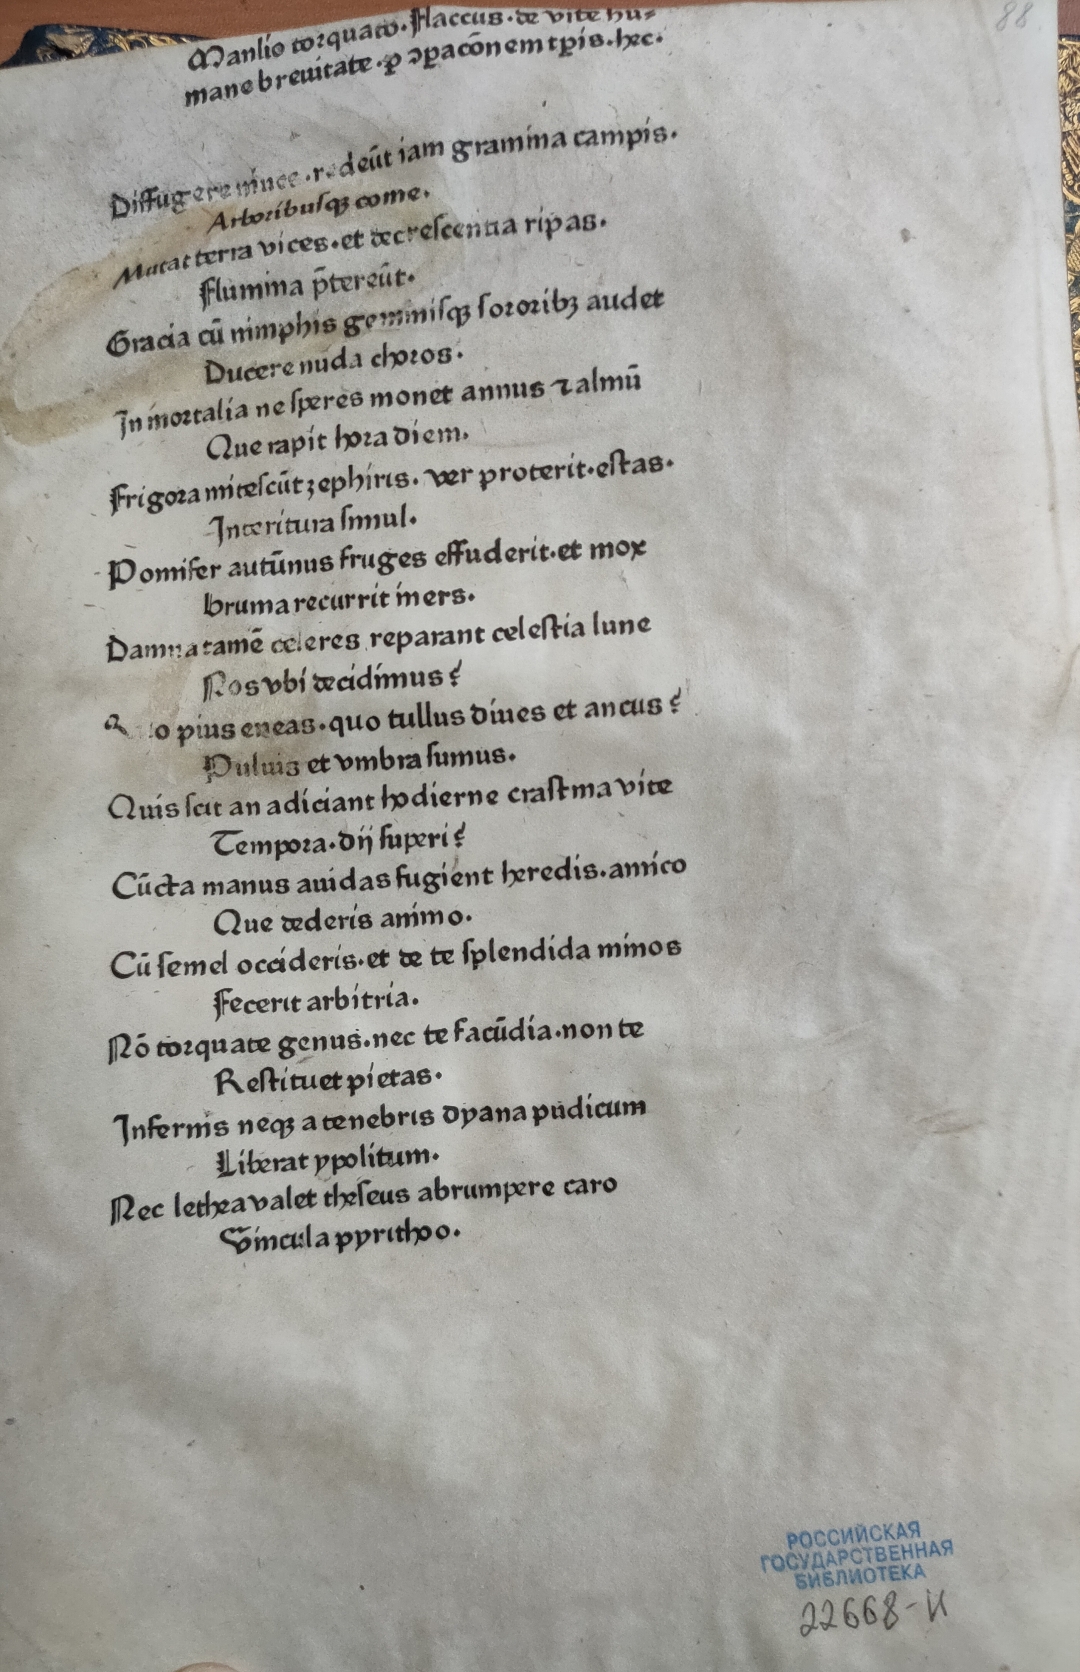 88
Manlio torquato. Flaccus. de vite hu-
mane breuitate. ꝑ ↄꝑac̄onem tꝑis. hec.
Diffugere niuee. redeūt iam gramina campis.
Arboribusqꝫ come.
Mutat terra vices. et decrescentia ripas.
Flumina p̄tereūt.
Gracia cū nimphis gemmisqꝫ sororibꝫ audet
Ducere nuda choros.
Inmortalia ne speres monet annus ⁊ almū
Que rapit hora diem.
Frigora mitescūt zephiris. ver proterit. estas.
Interitura simul.
Pomifer autūnus fruges effuderit. et mox
bruma recurrit iners.
Damna tamē celeres reparant celestia lune
Nos vbi decidimus?
Quo pius eneas. quo tullus diues et ancus?
Puluis et vmbra sumus.
Quis scit an adiciant hodierne crastina vite
Tempora. dij superi?
Cūcta manus auidas fugient heredis. amico
Que dederis animo.
Cū semel occideris. et de te splendida minos
Fecerit arbitria.
Nō torquate genus. nec te facūdia. non te
Restituet pietas.
Infernis neqꝫ a tenebris dyana pudicum
Liberat ypolitum.
Nec lethea valet theseus abrumpere caro
Vincula pyrithoo.
РОССИЙСКАЯ
ГОСУДАРСТВЕННАЯ
БИБЛИОТЕКА
22668-И